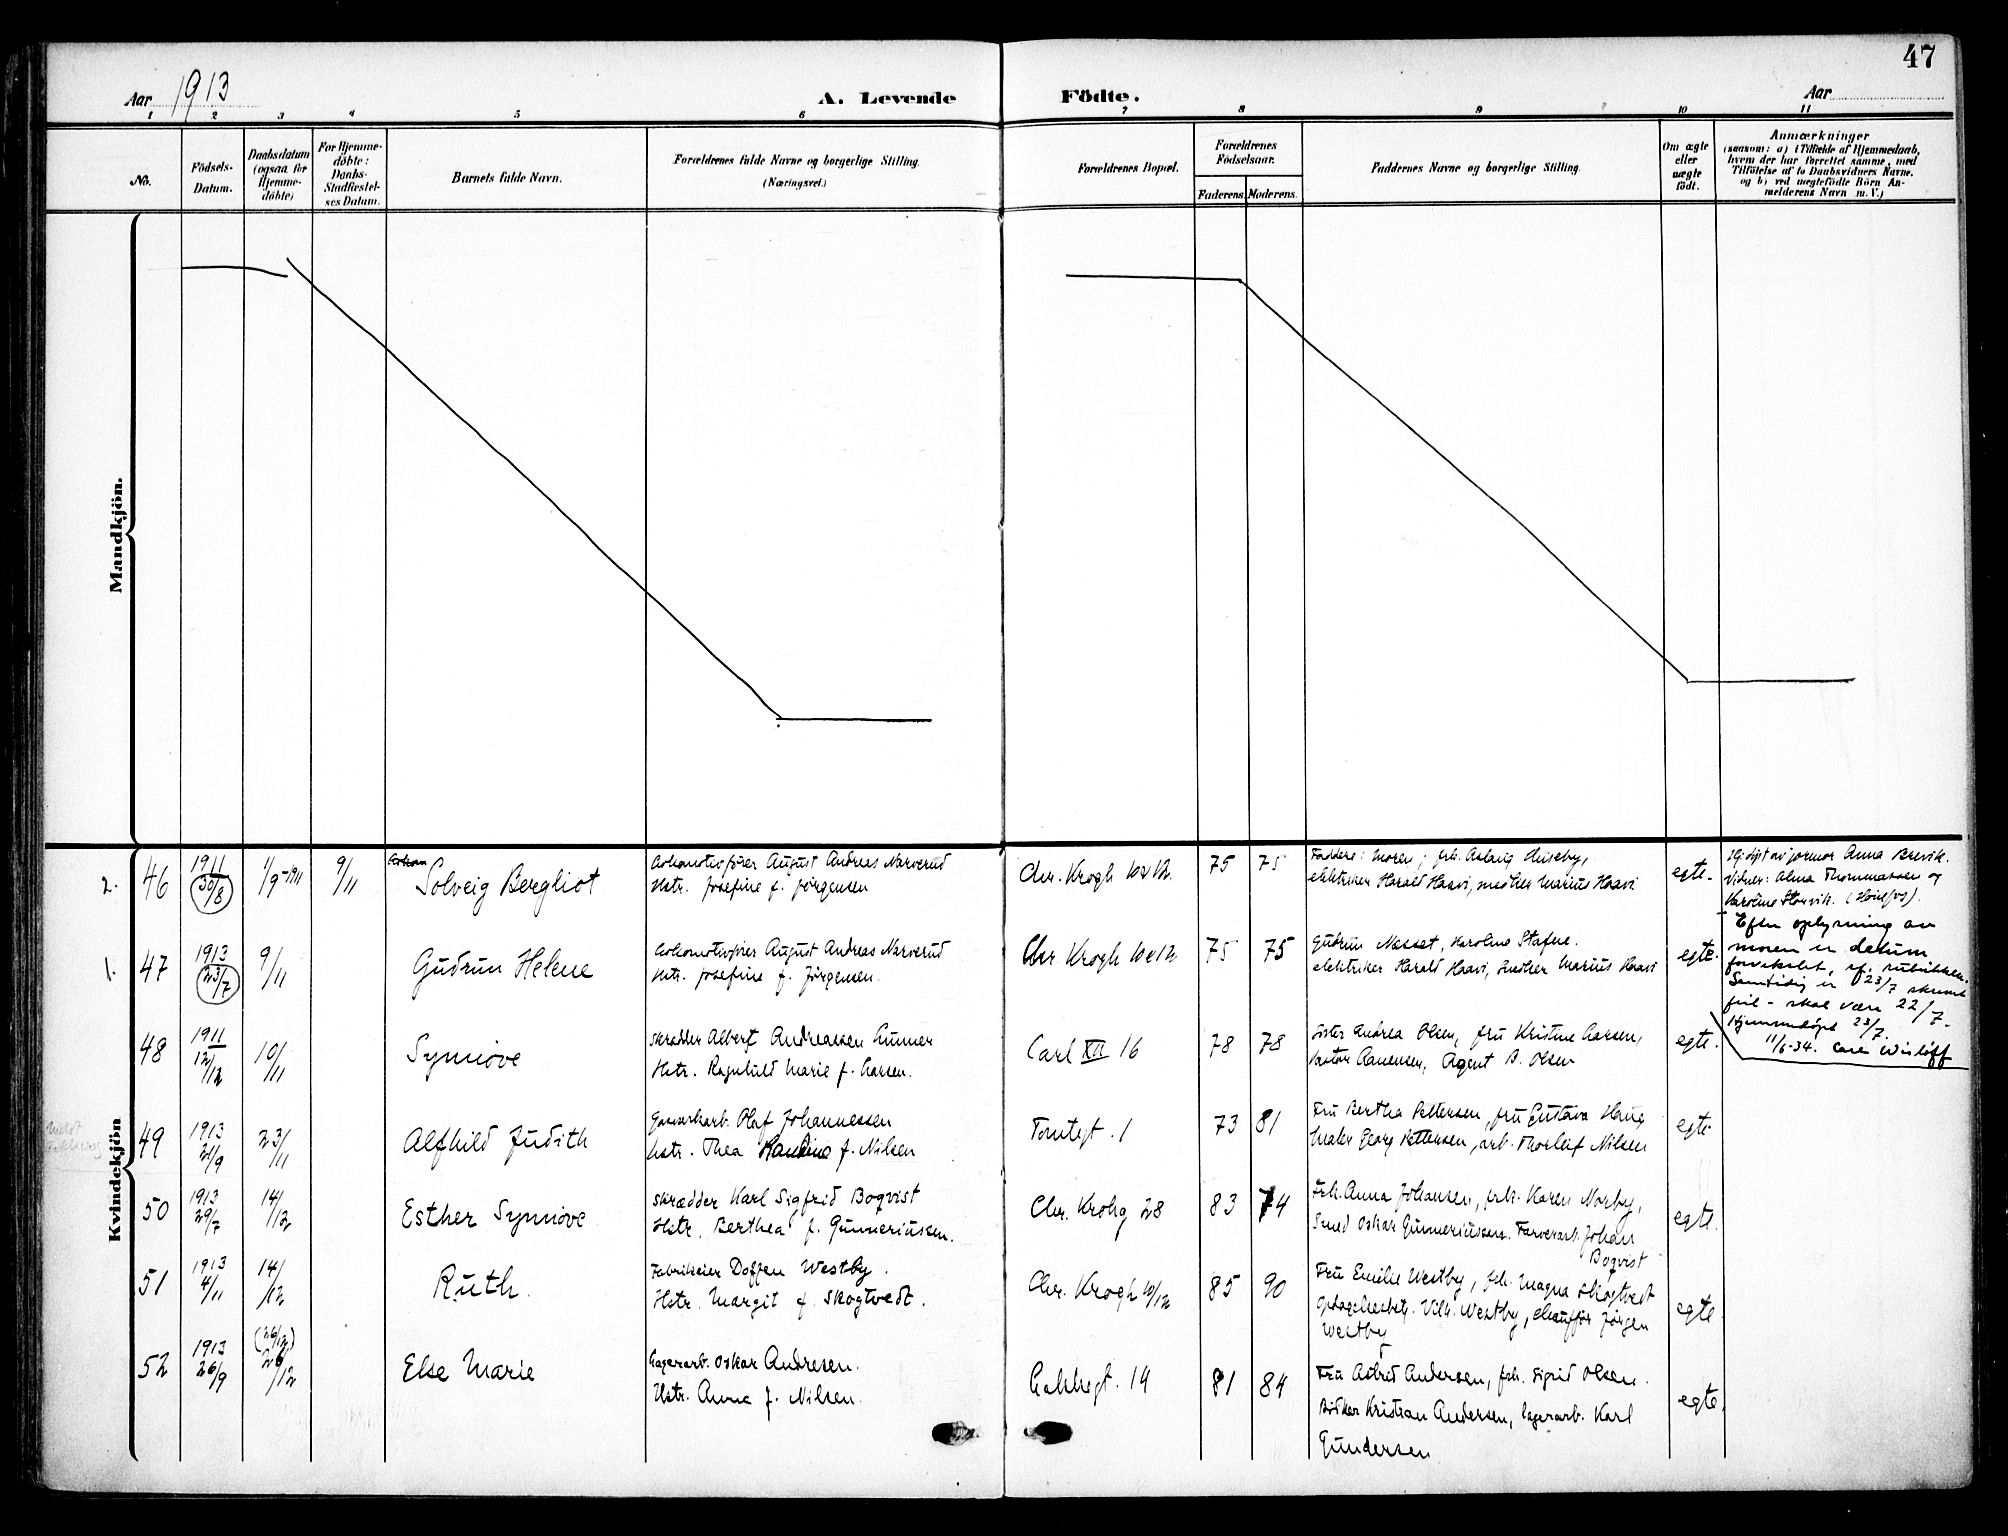 47
Aar 1913
A. Levende Födte.
Aar
1 2 3 4 5 6 7 8 9 10 11
No.
Födsels-
Datum.
Daabsdatum
(ogsaa for
Hjemme-
døbte)
For Hjemme-
døbte:
Daabs-
Stadfæstel-
ses Datum.
Barnets fulde Navn.
Forældrenes fulde Navne og borgerlige Stilling.
(Næringsvei.)
Forældrenes Bopæl.
Forældrenes
Födselsaar.
Faderens. Moderens.
Faddernes Navne og borgerlige Stilling.
Om ægte
eller
uægte
födt.
Anmærkninger
(saasom: a) i Tilfælde af Hjemmedaab,
hvem der har forrettet samme, med
Tilföielse af to Daabsvidners Navne.
og b) ved uægtefödte Börn An-
melderens Navn m. V.)
Mandkjön.
Kvindekjön
2. 46
1911
30/8
1/9-1911
9/11
Solveig Bergliot
Lokomotivfører August Andreas Narverud
Hstr. Josefine f. Jørgensen
Chr. Krogh
75 75
Faddere: moren; frk. Aslaug Huseby,
elektriker Harald Haavi, Marius Haavi
egte.
Hj.døpt av jormor Anna Brevik.
Vidner: Alma Thommassen og
Karoline Storvik. (Hønefos).
1. 47
1913
23/7
9/11
Gudrun Helene
Lokomotivfører August Andreas Narverud
Hstr. Josefine f. Jørgensen.
Chr Krogh
75 75
Gudrun Nesset, Karoline Stafne.
elektriker Harald Haavi, Marius Haavi
egte.
Efter oplysning av
moren er datum
forvekslet, cf. rubrikken.
Samtidig er 23/7 skrevet
feil - skal være 22/7.
Hjemmedøpt 23/7.
11/6-34. Carl Wisløff
48
1911
12/12
10/11
Synnøve
Skrædder Albert Andreassen Gunner
Hstr. Ragnhild Marie f. Larsen.
Carl XII 16
78 78
Søster Andrea Olsen, fru Kristine Larsen,
Pastor Aanensen, Agent B. Olsen
egte.
49
1913
21/9
23/11
Alfhild Judith
Gasverkarb. Olaf Johannessen
Hstr. Thea f. Nilsen
Tomtegt. 1
73 81
Fru Bertha Pettersen, fru Gustava Haug
Maler Georg Pettersen, arb. Thorleif Nilsen
egte
50
1913
29/7
14/12
Esther Synnøve
Skrædder Karl Sigfrid Boqvist
Hstr. Berthea f. Gunneriussen.
Chr. Krohg 28
83 74
Frk. Anna Johansen, frk. Karen Norby,
Smed Oskar Gunneriussen. Farverarb. Johan
Boqvist
egte.
51
1913
4/11
14/12
Ruth.
Fabrikeier Doffen Westby.
Hstr. Margit f. Skogtvedt.
Chr. Krogh 10/12
85 90
Fru Emilie Westby, frk. Magna Skogtvedt
Vilh. Westby, chauffør Jørgen
Westby
egte
52
1913
26/9
(26/12)
26/12
Else Marie
Lagerarb. Oskar Andresen.
Hstr. Anna f. Nilsen.
Gabbegt. 14
81 84
Fru Astrid Andersen, frk. Sigrid Olsen.
Bødker Kristian Andersen, lagerarb. Karl
Gundersen
egte.